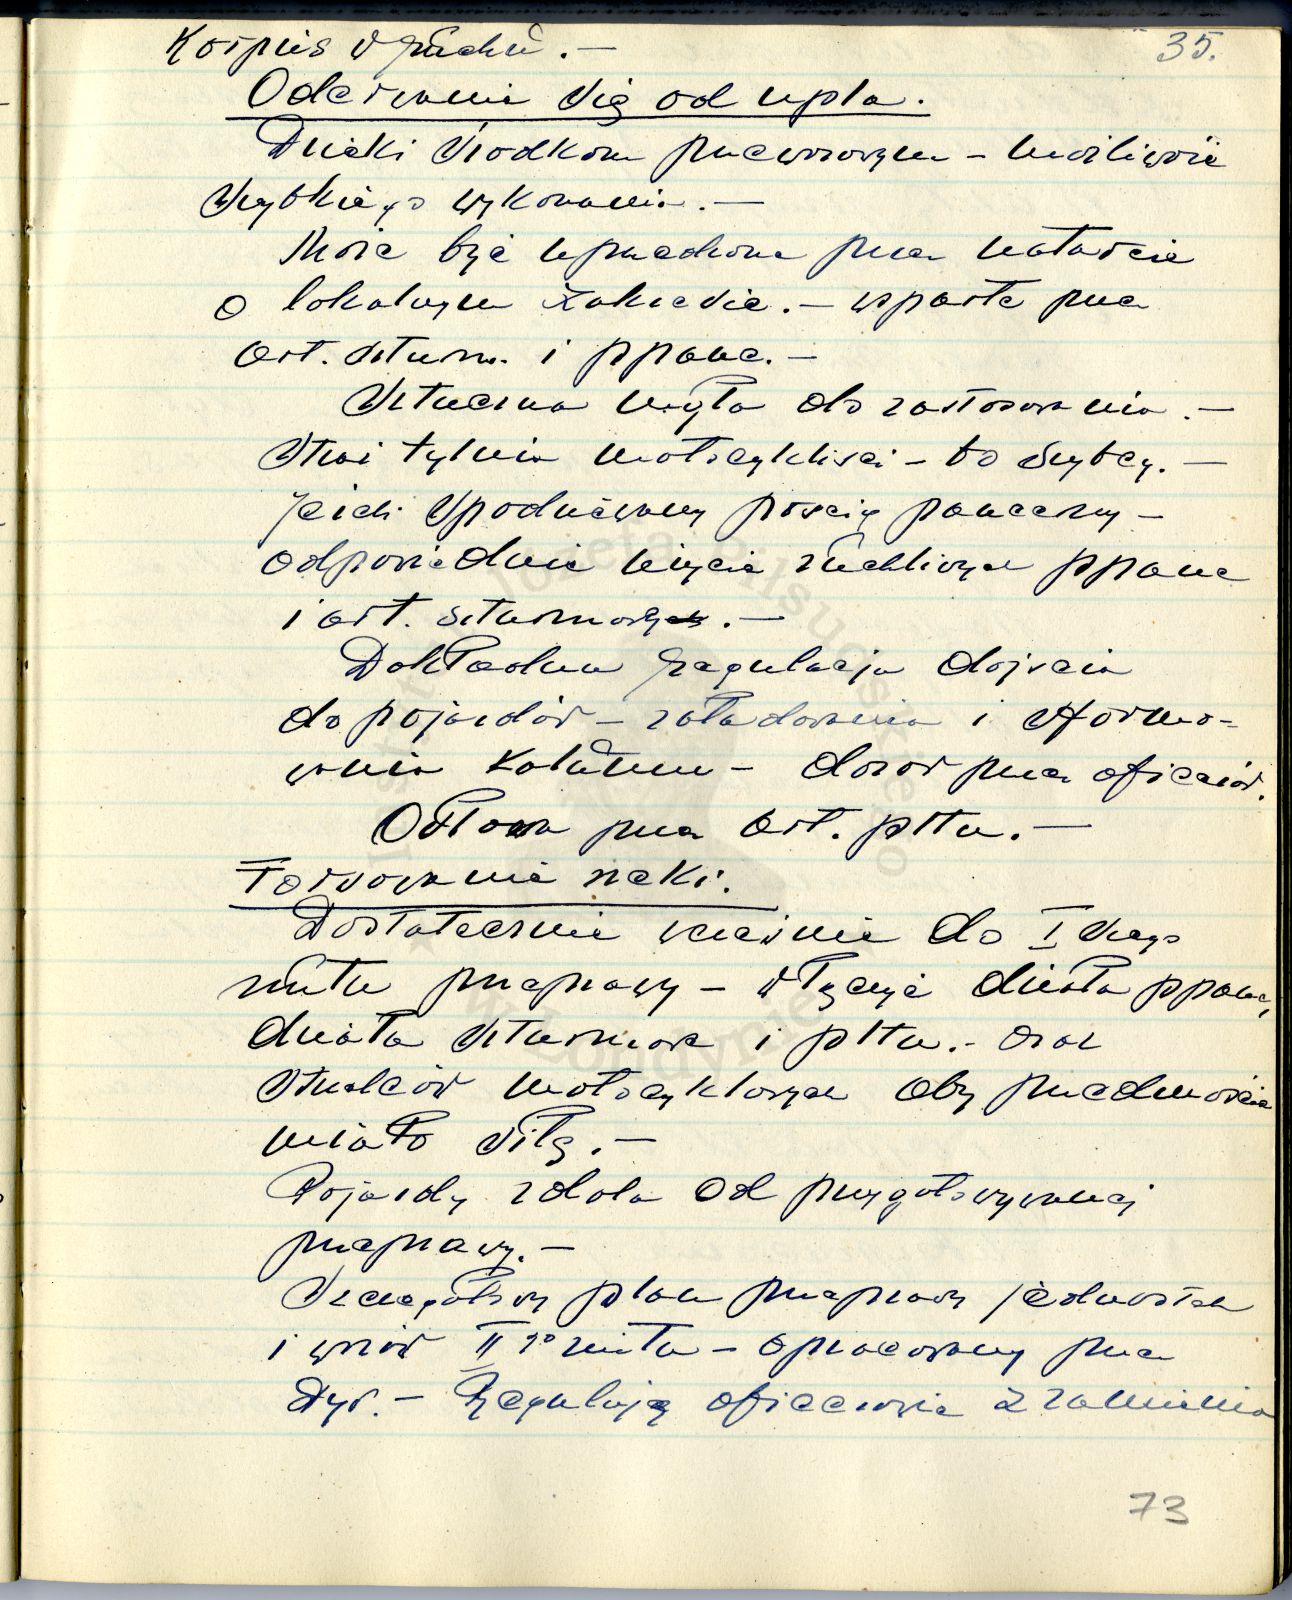 35.
Korpus w ruchu. —
Oderwanie się od npla.
Dzięki środkom przewozowym – możliwość
szybkiego wykonania. —
Może być uprzedzone przez natarcie
o lokalnym zakresie. — wsparte przez
art. szturm. i ppanc. —
Sztuczna mgła do zastosowania. —
Straż tylnia motocykliści – bo szybcy. —
Jeżeli spodziewany pościg pancerny –
odpowiednie użycie ruchliwych ppanc
i art. szturmowych. —
Dokładna regulacja dojścia
do pojazdów – załadowania i sformo-
wania kolumn – dozór przez oficerów.
Osłona przez art. pltn. —
Forsowanie rzeki.
Dostatecznie wcześnie do I szego
rzutu przeprawy – włączyć działa ppanc,
działa szturmowe i pltn. – oraz
strzelców motocyklowych aby przedmoście
miało siłę. —
Pojazdy zdala od przygotowywanej
przeprawy. —
Szczegółowy plan przeprawy jednostek
i wozów II go rzutu – opracowany przez
Dyw. — Regulują oficerowie z ramienia
73
Instytut Józefa Piłsudskiego
w Londynie